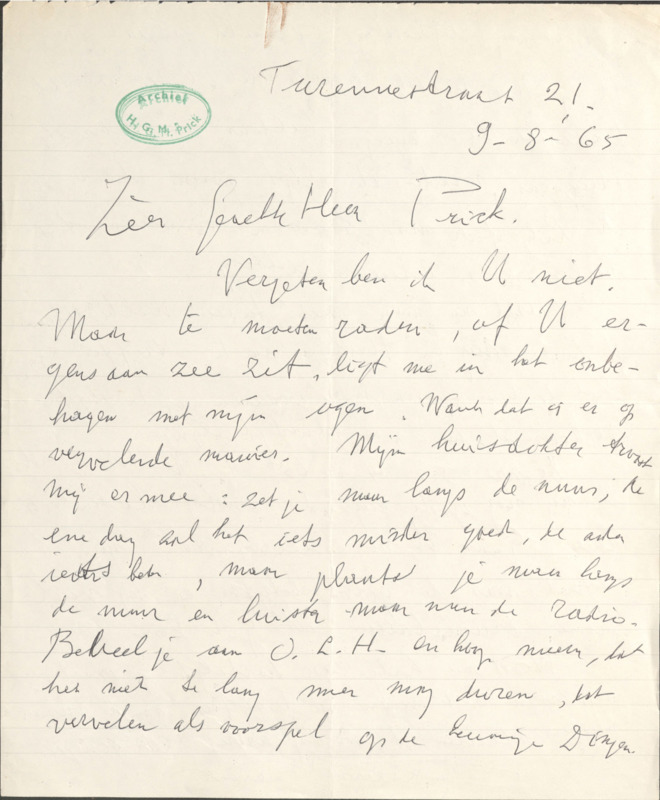 Turennestraat 21.
9-8-'65
Archief
H. G. M. Prick
Zéér Geachte Heer Prick.
Vergeten ben ik U niet.
Maar te moeten raden, of U er-
gens aan zee zit, ligt me in het onbe-
hagen met mijn ogen. Want dat is er op
vervelende manier. Mijn huisdokter troost
mij ermee: zet je maar langs de muur; de
ene dag zal het iets minder goed, de andere
iets beter, maar plants je maar langs
de muur en luister maar naar de radio.
Beveel je aan O. L. H. en hoop maar, dat
het niet te lang meer mag duren, dat
vervelen als voorspel op de Eeuwige Dingen.